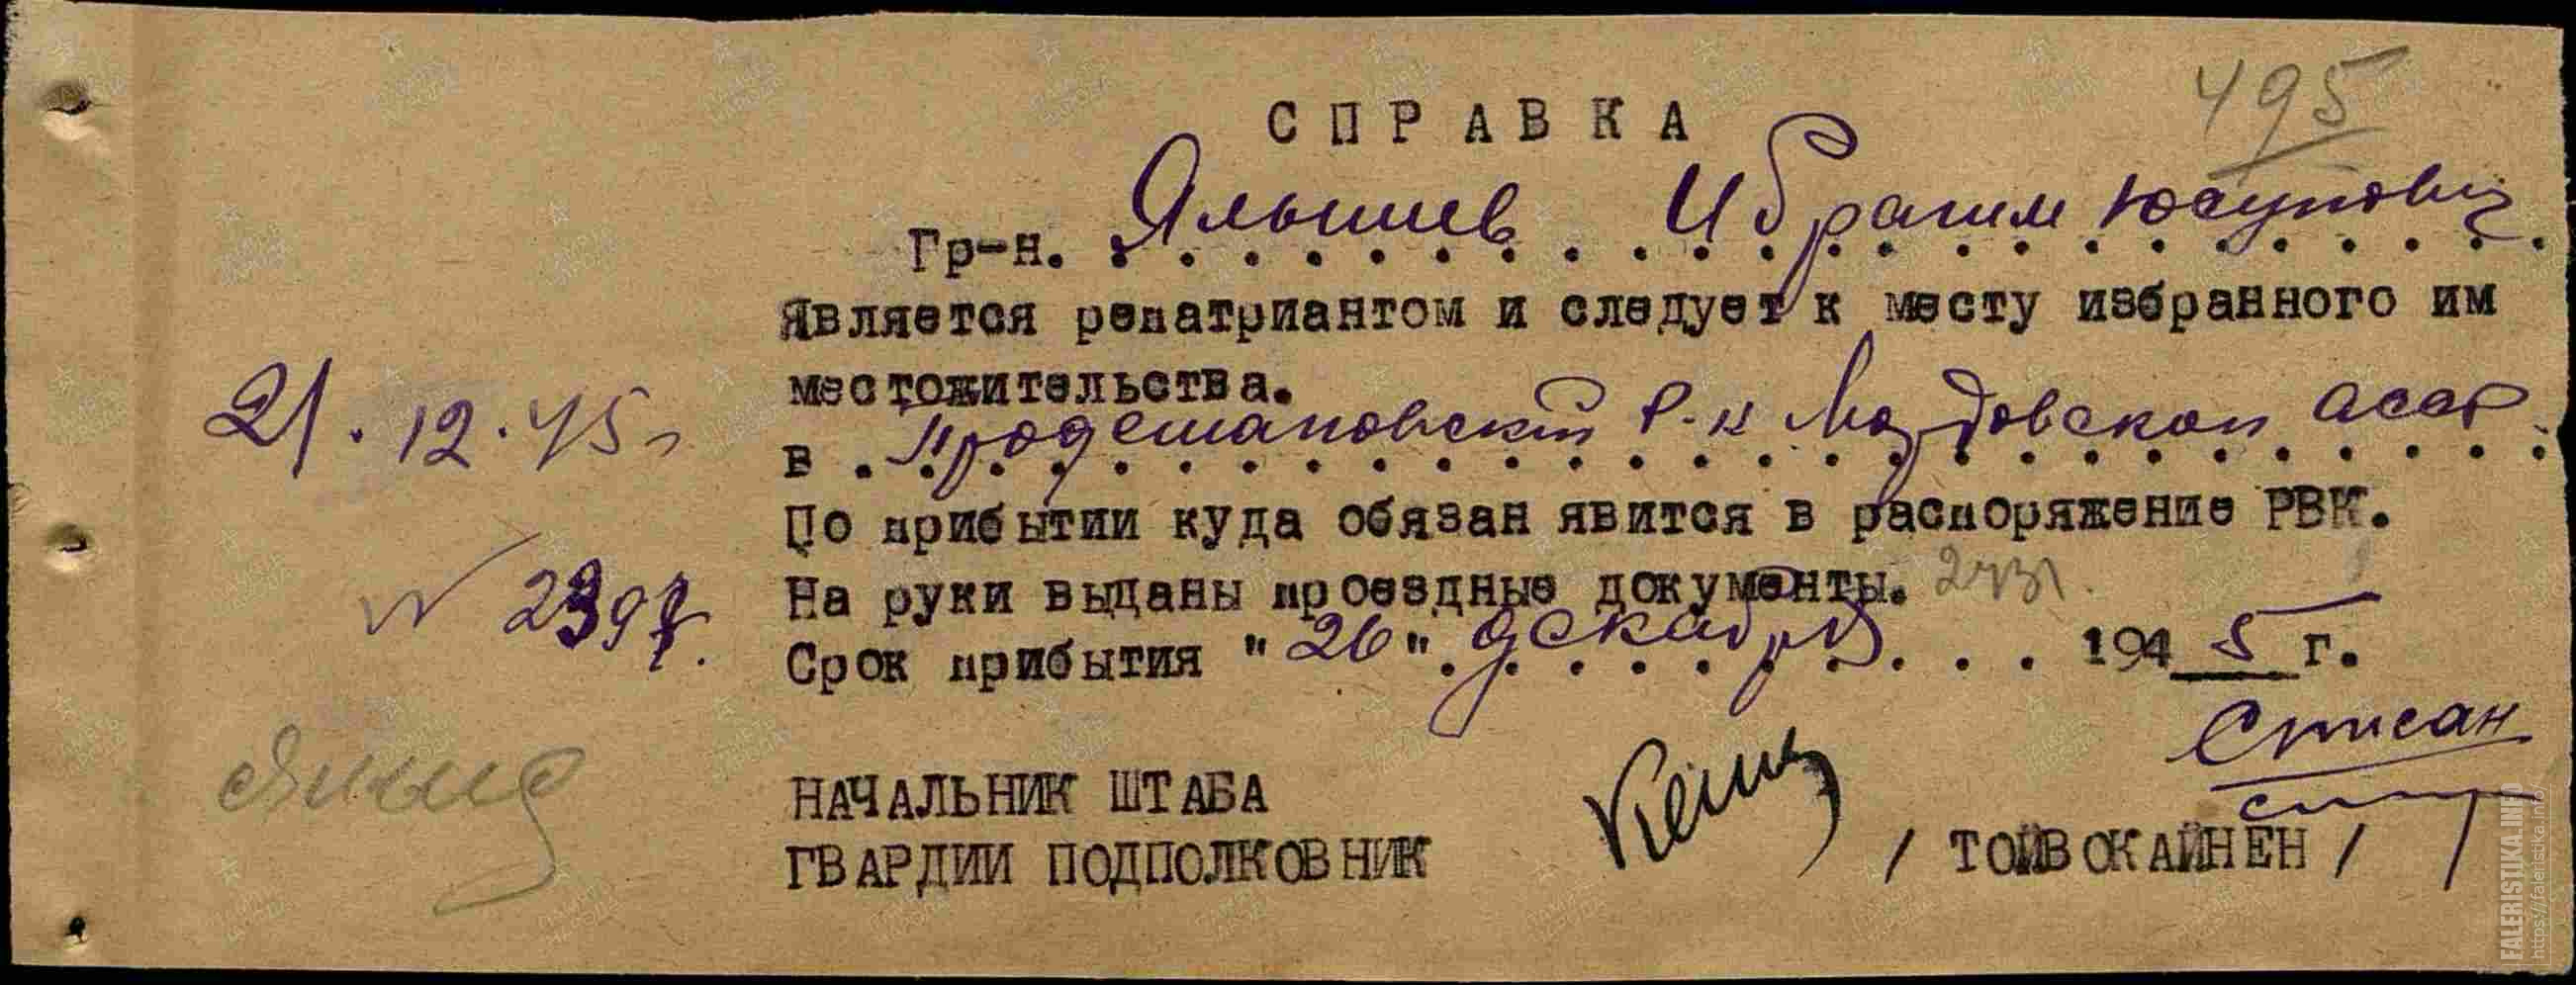 495
СПРАВКА
Гр-н. Ялышев Ибрагим Юсупович
Является репатриантом и следует к месту избранного им
местожительства.
21.12.45 г
в Р-н Мордовской АССР
По прибытии куда обязан явится в распоряжение РВК.
№ 2397.
На руки выданы проездные документы.
Срок прибытия "26" декабря 1945 г.
Списан
НАЧАЛЬНИК ШТАБА
ГВАРДИИ ПОДПОЛКОВНИК / ТОЙВОКАЙНЕН /
FALERISTIKA.INFO
https://faleristika.info